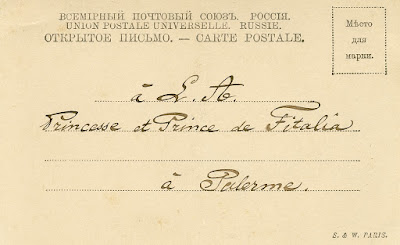 ВСЕМІРНЫЙ ПОЧТОВЫЙ СОЮЗЪ. РОССІЯ.
UNION POSTALE UNIVERSELLE. RUSSIE.
ОТКРЫТОЕ ПИСЬМО. — CARTE POSTALE.
Мѣсто
для
марки.
à L. A.
Princesse et Prince de Fitalia
à Palerme.
E. & W. PARIS.